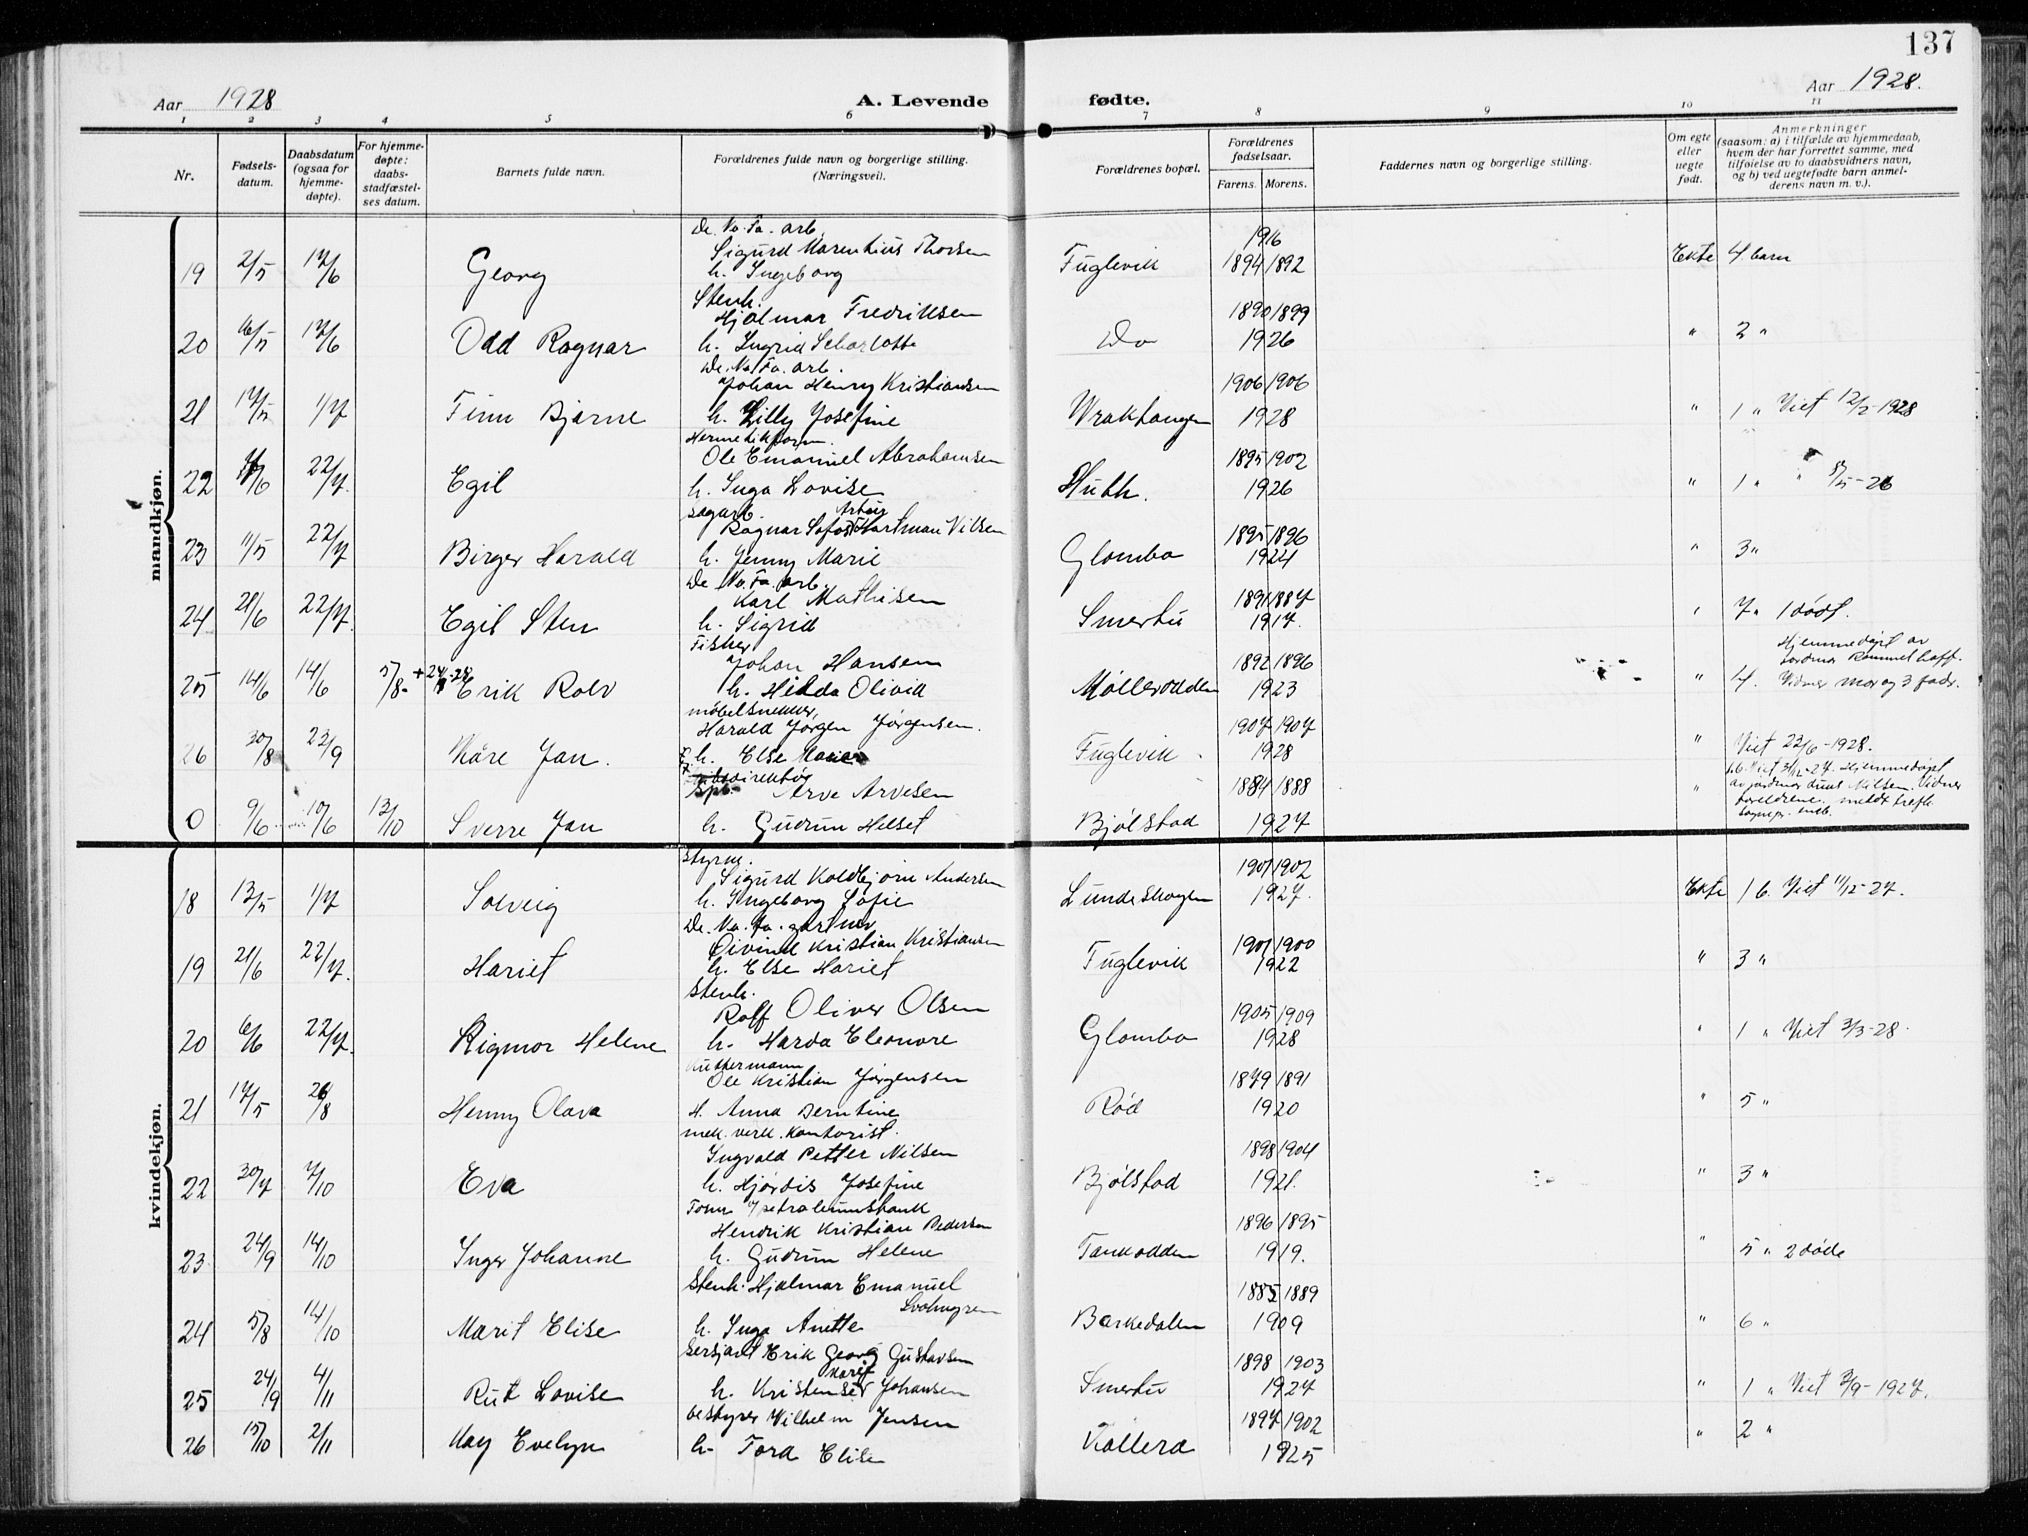 137
Aar 1928
A. Levende
fødte.
Aar 1928.
1 2 3 4 5 6 7 8 9 10 11
Nr.
Fødsels-
datum.
Daabsdatum
(ogsaa for
hjemme-
døpte).
For hjemme-
døpte:
daabs-
stadfæstel-
ses datum.
Barnets fulde navn.
Forældrenes fulde navn og borgerlige stilling.
(Næringsvei).
Forældrenes bopæl.
Forældrenes
fødselsaar.
Farens. Morens.
Faddernes navn og borgerlige stilling.
Om egte
eller
uegte
født.
Anmerkninger
(saasom: a) i tilfælde av hjemmedaab,
hvem der har forrettet samme, med
tilføielse av to daabsvidners navn,
og b) ved uegtefødte barn anmel-
derens navn m. v.).
mandkjøn.
De. No. Fa. arb.
Sigurd Marentius Thorsen
1916
19 2/5 17/6 Georg h. Ingeborg Fuglevik 1894/1892 Ekte 4 barn
Stenh.
Hjalmar Fredriksen 1890/1899
20 6/5 17/6 Odd Ragnar h. Ingrid Scharlotte Do 1926 " 2 "
De. No. Fa. arb.
Johan Henry Kristiansen 1906/1906
21 17/5 1/7 Finn Bjarne h. Lilly Josefine Vrakhaugen 1928 " 1 " Viet 12/2-1928
Ole Emanuel Abrahamsen 1895/1902
22 22/7. Egil h. Inga Lovise Huth. 1926 " 1 " "
sagarb.
Ragnar Hartman Nilsen 1895/1896
23 11/5 22/7 Birger Harald h. Jenny Marie Glombo 1924 " 3 "
De No. Fa. arb.
Karl Mathisen 1891/1887
24 21/6 22/7. Egil Sten h. Sigrid Smertu 1917. " 7 " 1 død.
Fisker
Johan Hansen 1892/1896
Hjemmedøpt av
jordmor Rommelhoff.
25 14/6 14/6 5/8- Erik Rolv h. Hilda Olivia Mølleodden 1923 " 4. Vidner mor og 3 fadr.
møbelsnekker,
Harald Jørgen Jørgensen. 1907/1907
26 30/8 23/9 Kåre Jan. h. Else Marie Fuglevik 1928 " Viet 23/6-1928.
Arve Arvesen 1884/1888
0 9/6 10/6 13/10 Sverre Jan h. Gudrun Helset Bjølstad 1927 "
kvindekjøn.
Styrm.
Sigurd Koldbjørn Andersen 1901/1902
18 13/5 1/7 Solveig h. Ingeborg Sofie Lundeskogen 1927. Ekte 1 b. Viet 11/12-27.
De. No. Fa. gartner
Øivind Kristian Kristiansen 1901/1900
19 21/6 22/7. Hariet h. Else Hariet Fuglevik 1922 " 3 "
Stenh.
Rolf Oliver Olsen 1905/1909
20 6/6 22/7. Rigmor Helene h. Harda Eleonore Glombo 1928 " 1 " Viet 3/3-28.
Kuttermann
Ole Kristian Jørgensen 1879/1891
21 17/5 26/8 Henny Olava H. Anna Berntine Rød 1920 " 5 "
mek. verk. Kontorist.
Ingvald Petter Nilsen 1898/1904
22 30/7 7/10 Eva h. Hjørdis Josefine Bjølstad 1921. " 3 "
Hendrik Kristian Pedersen 1896/1895
23. 24/9 14/10 Inger Johanne h. Gudrun Helene Tankodden 1919. " 5 " 2 døde
Stenh. Hjalmar Emanuel 1885/1889
24 5/8 14/10 Marit Elise h. Inga Anette Barkedalen 1909 " 6 "
Sersjant Erik Georg Gustavsen 1898/1903
25 24/9 4/11 Rut Lovise h. Johansen Smertu 1927 " 1 " Viet 3/9-1927.
bestyrer Wilhelm Jensen 1897/1902
26 15/10 2/11 May Evelyn h. Tora Elise Kollerø 1925 " 2 "